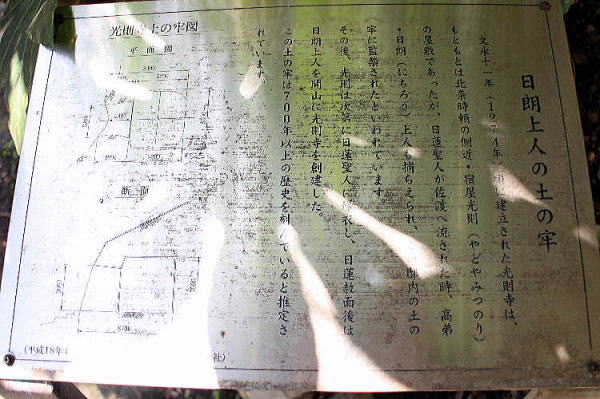 日朗上人の土の牢
文永十一年(1274年)頃に建立された光則寺は、
もともとは北条時頼の側近・宿屋光則(やどやみつのり)
の屋敷であったが、日蓮聖人が佐渡へ流された時、高弟
・日朗(にちろう)上人も捕らえられ、この邸内の土の
牢に監禁されたといわれています。
その後、光則は次第に日蓮聖人に帰依し、日蓮赦面後は
日朗上人を開山に光則寺を創建した。
この土の牢は700年以上の歴史を刻んでいると推定さ
れています。
光則寺土の牢図
平面図
断面
(平成18年
社)